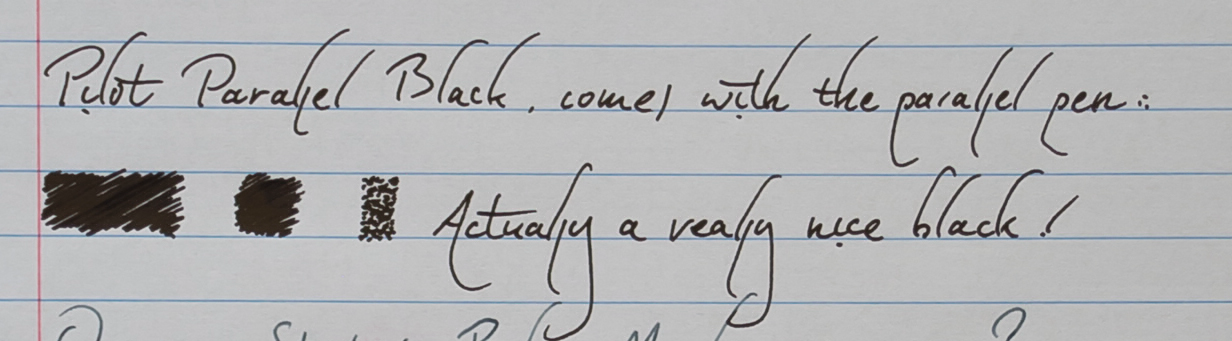 Pilot Parallel Black, comes with the parallel pen :
Actually a really nice black!